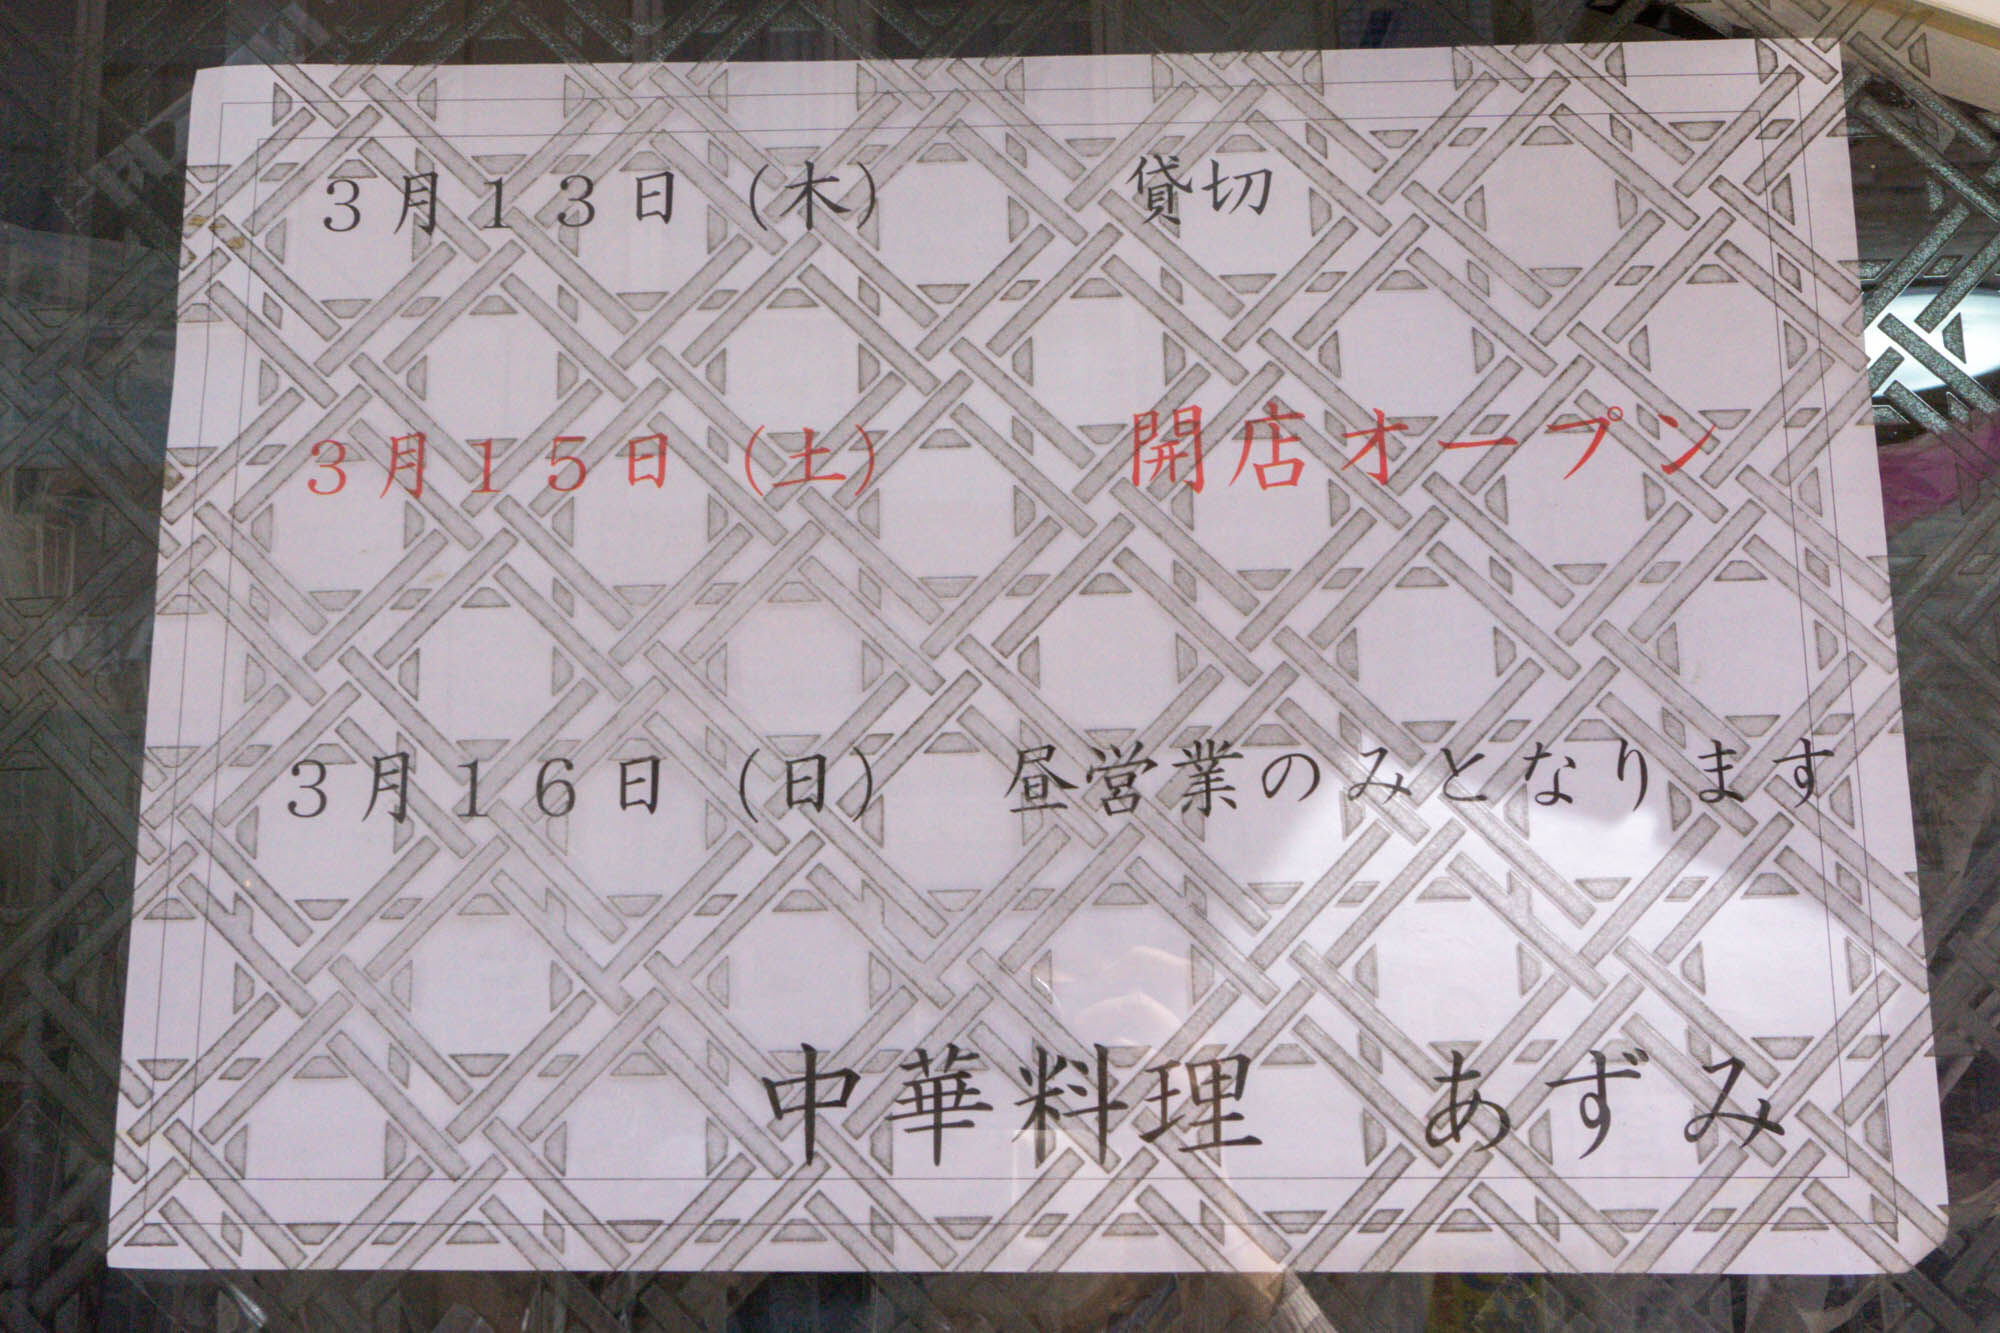 ３月１３日（木）　貸切
３月１５日（土）　開店オープン
３月１６日（日）　昼営業のみとなります
中華料理　あずみ